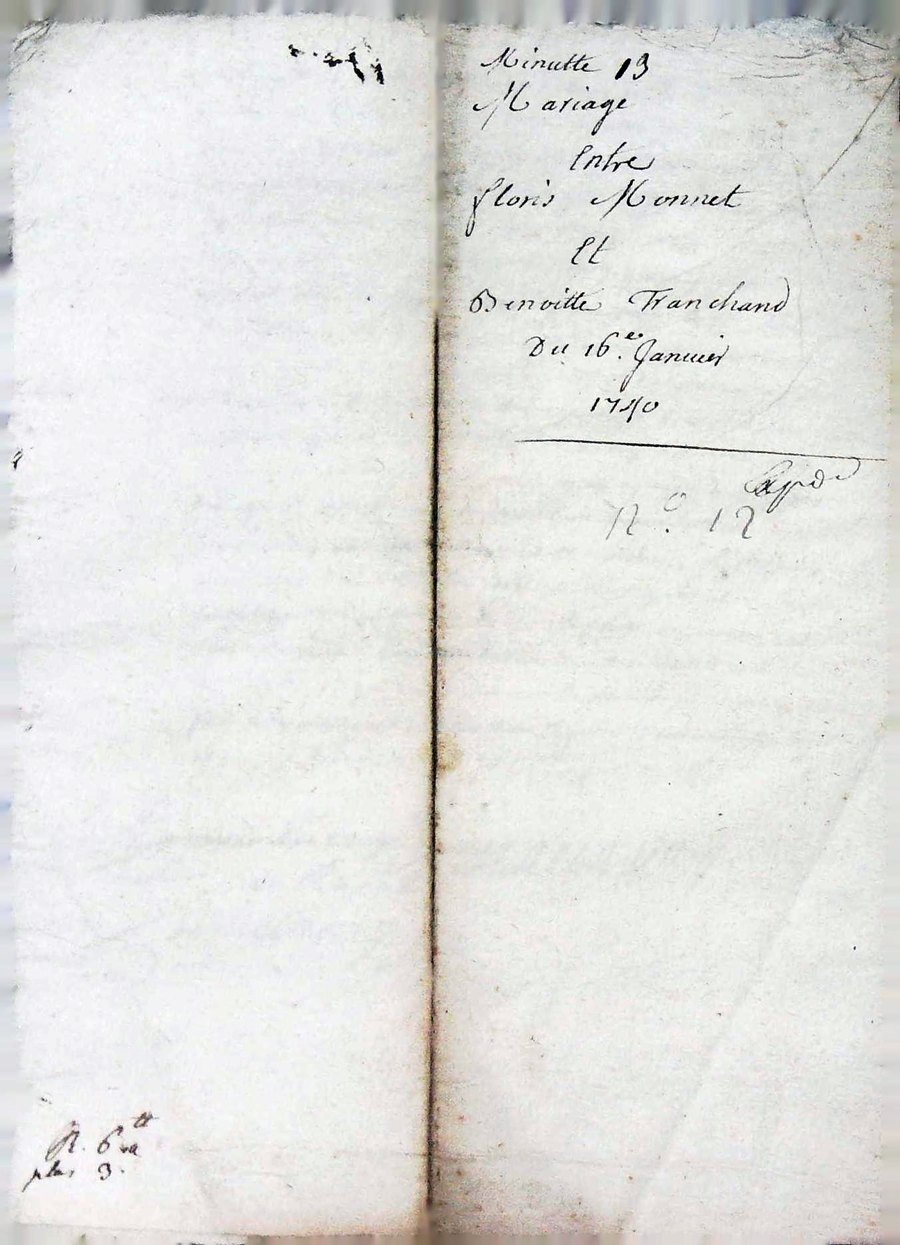 Minutte 13
Mariage
Entre
floris Monnet
Et
Benoitte Tranchand
Du 16.e Januier
1740
Expde
N.o 12
R. 6tt
plus 3.